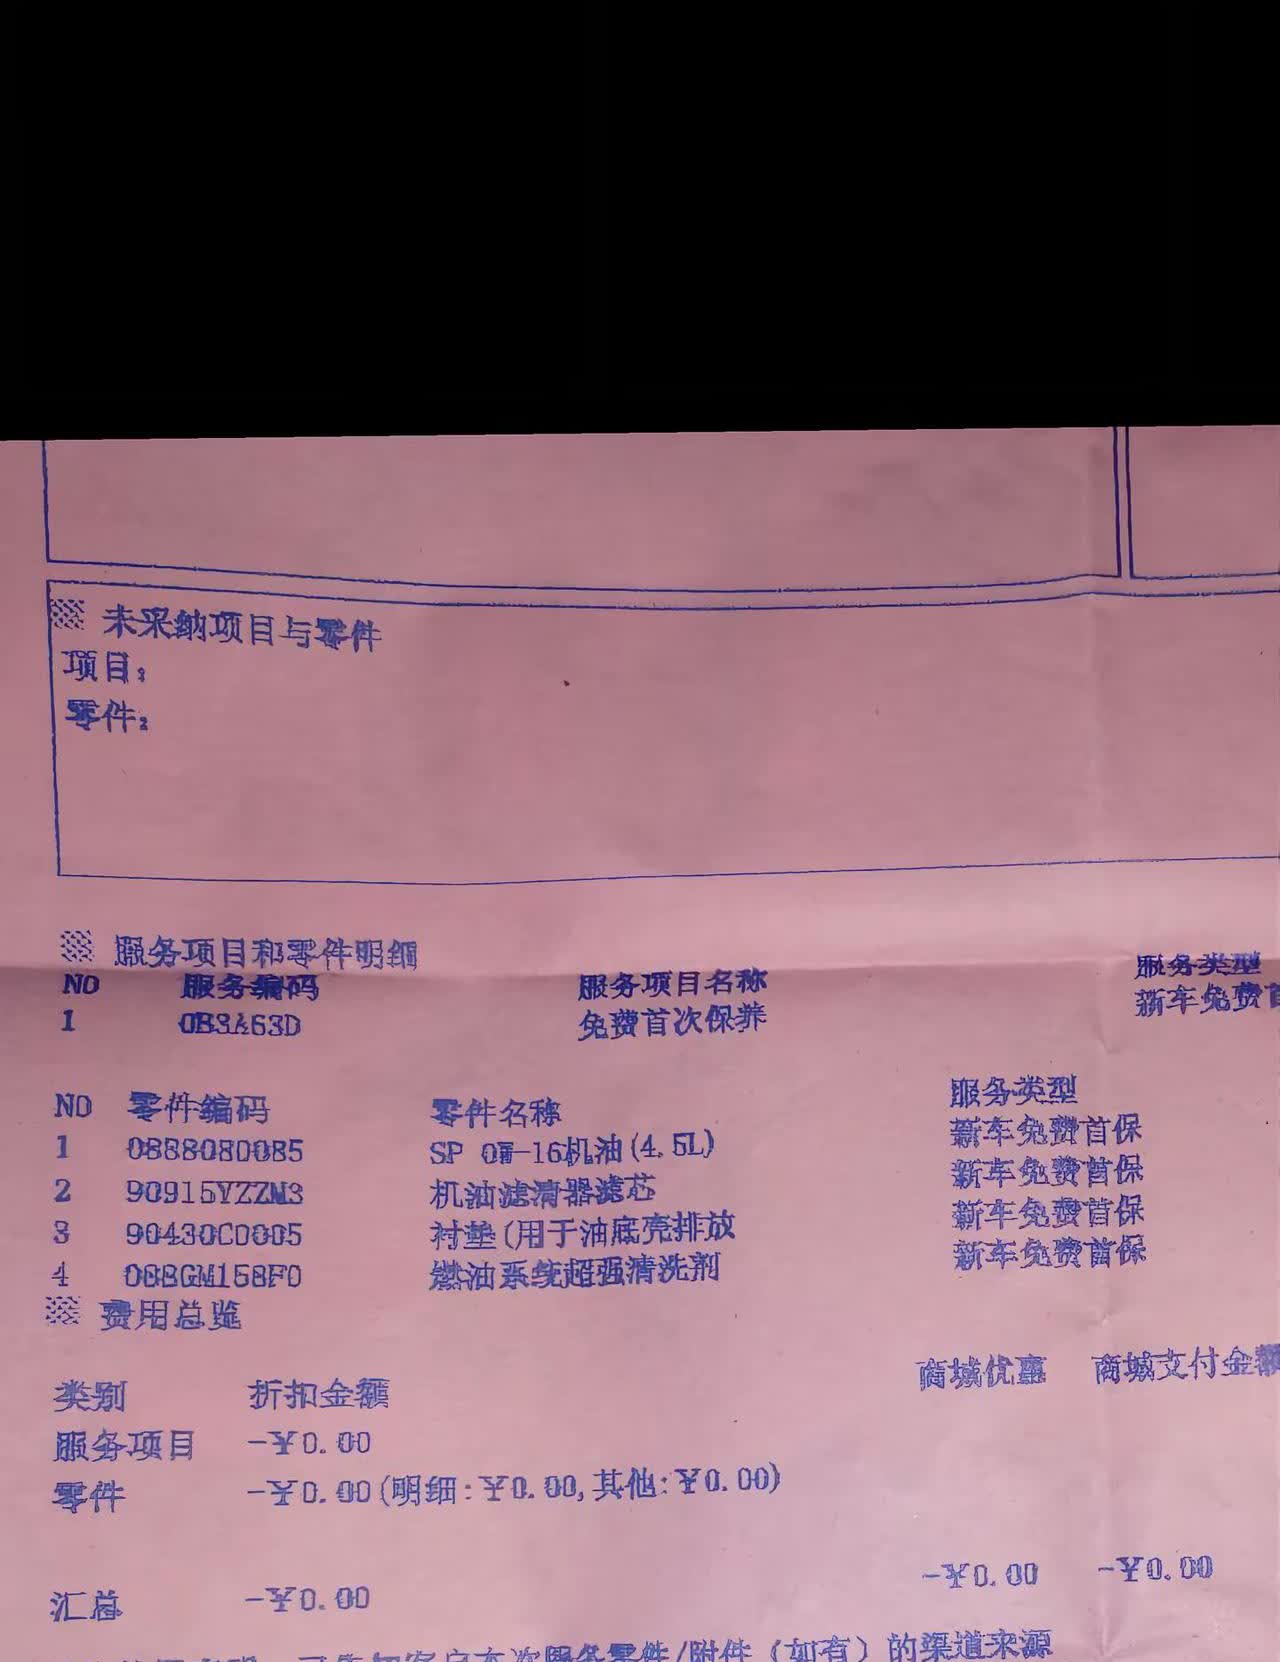 未采纳项目与零件
项目:
零件:
服务项目和零件明细
NO 服务编码 服务项目名称 服务类型
1 0B3A63D 免费首次保养 新车免费首
NO 零件编码 零件名称 服务类型
1 0888080085 SP 0W-16机油(4.5L) 新车免费首保
2 90915YZZM3 机油滤清器滤芯 新车免费首保
3 90430C0005 衬垫(用于油底壳排放 新车免费首保
4 088GM158F0 燃油系统超强清洗剂 新车免费首保
费用总览
类别 折扣金额 商城优惠 商城支付金额
服务项目 -¥0.00
零件 -¥0.00(明细:¥0.00,其他:¥0.00)
汇总 -¥0.00 -¥0.00 -¥0.00
客户本次服务零件/附件（如有）的渠道来源